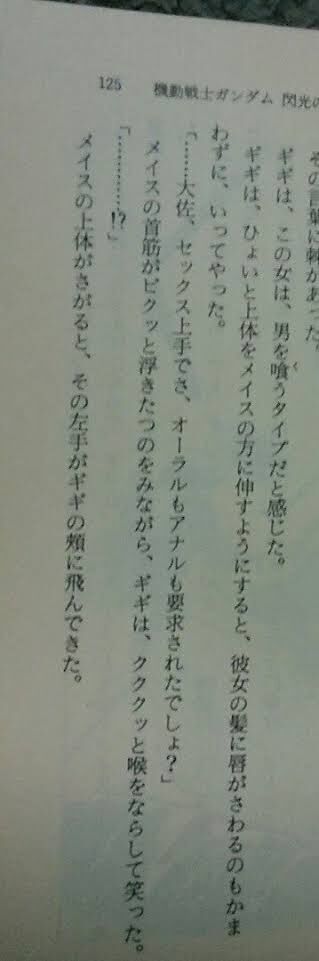 125
機動戦士ガンダム 閃光の
その言葉に棘があった。
ギギは、この女は、男を喰うタイプだと感じた。
く
ギギは、ひょいと上体をメイスの方に伸すようにすると、彼女の髪に唇がさわるのもかま
わずに、いってやった。
「………大佐、セックス上手でさ、オーラルもアナルも要求されたでしょ？」
メイスの首筋がピクッと浮きたつのをみながら、ギギは、クククッと喉をならして笑った。
「…………⁉」
メイスの上体がさがると、その左手がギギの頬に飛んできた。